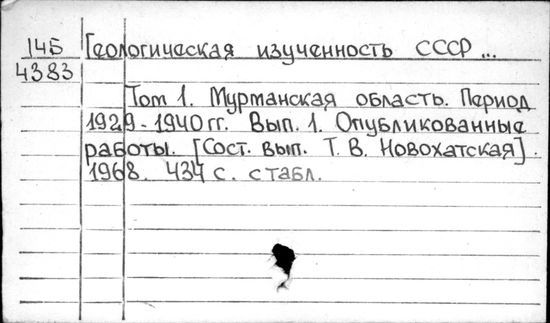 145 Геологическая изученность СССР ...
4383
Том 1. Мурманская область. Период
1929-1940 гг. Вып. 1. Опубликованные
работы. [Сост. вып. Т. В. Новохатская].
1968. 434 с. с табл.